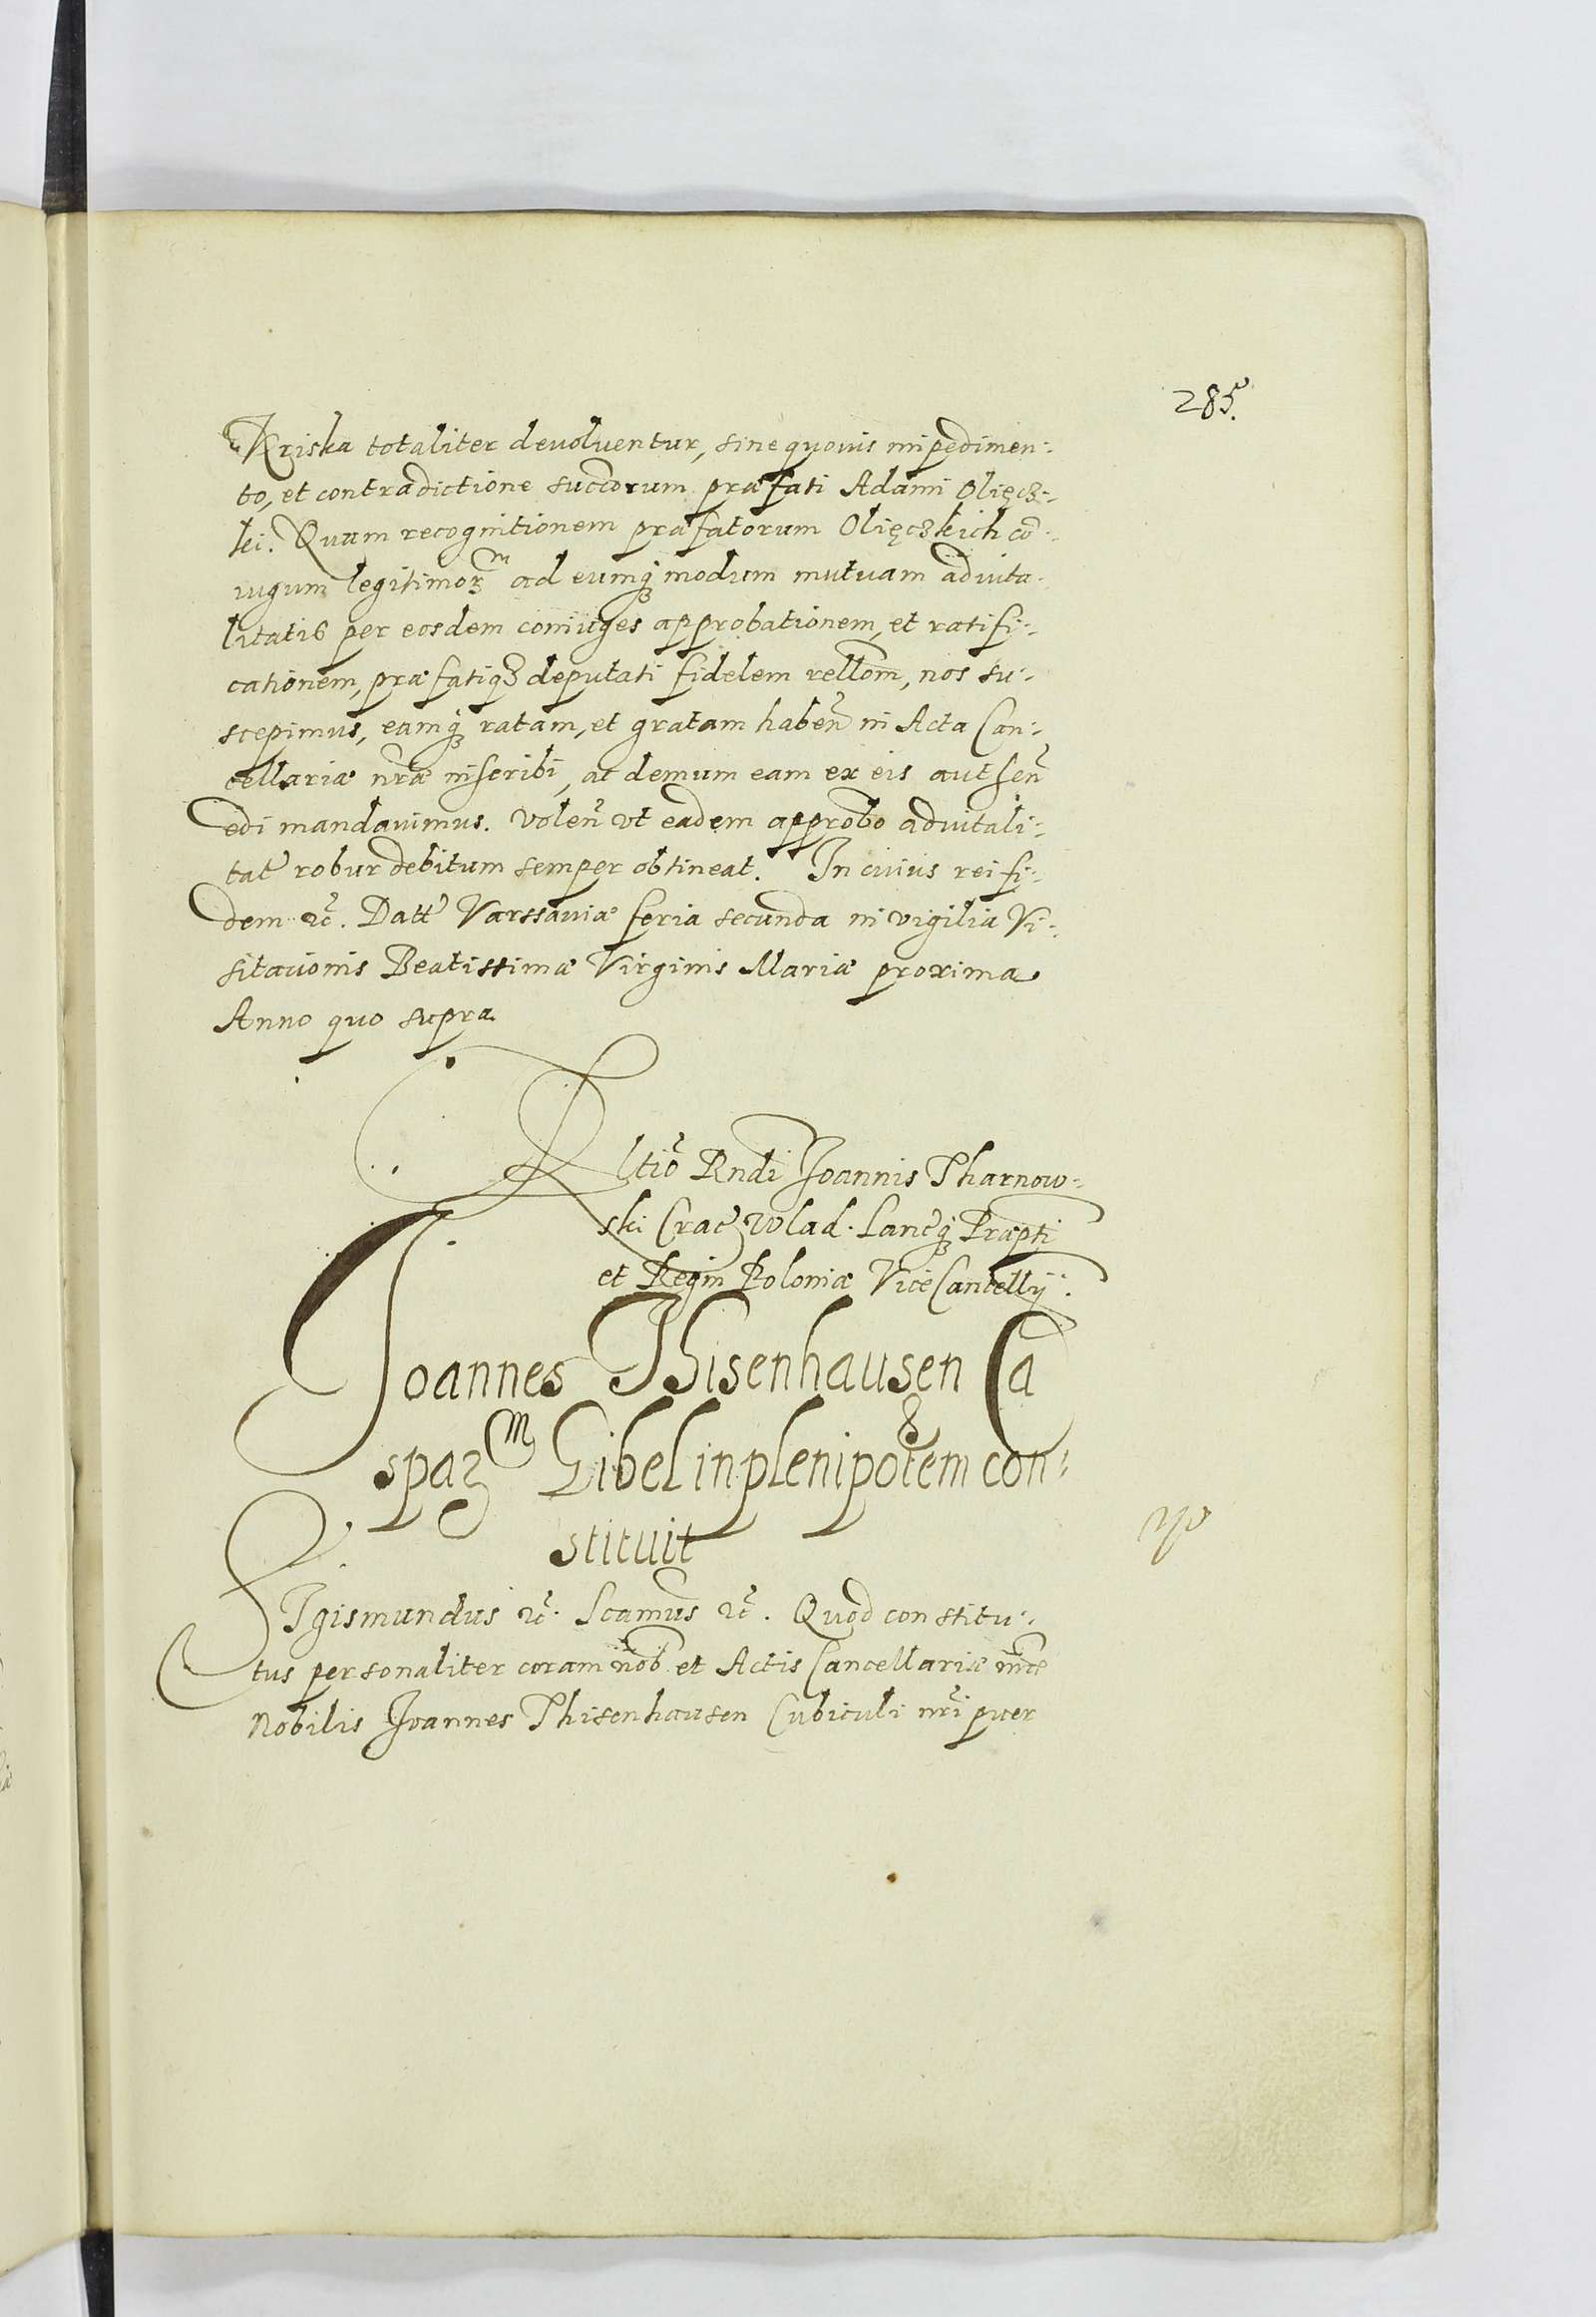 285.
Kriska totaliter devoluentur, sine quouis impedimen:
to, et contradictione succorum præfati Adami Olięcz:
ki. Quam recognitionem præfatorum Olięczkich co:
iugum legitimorᵐ ad eumq modum mutuam aduita:
litatis per eosdem coniuges approbationem, et ratifi:
cationem, præfatiq deputati fidelem rellom, nos su:
scepimus, eamq ratam, et gratam haben in Acta Can:
cellariæ nræ inscribi, ac demum eam ex eis authen
edi mandauimus. Volen vt eadem approbo aduitali:
tat robur debitum semper obtineat. In cuius rei fi:
dem etc. Datt Varssauiæ feria secunda in vigilia Vi:
sitationis Beatissimæ Virginis Mariæ proxima
Anno quo supra
Rltio Rndi Joannis Tharnow:
ski Crac Wlad. Lancq Præpti
et Regni Poloniæ ViceCancellij.
Joannes Thisenhausen Ca
sparᵐ Gibel in plenipotem con:
stituit
SIgismundus etc. Scamus etc. Quod constitu:
tus personaliter coram nob et Actis Cancellariæ nræ
Nobilis Joannes Thisenhausen Cubiculi nri puer